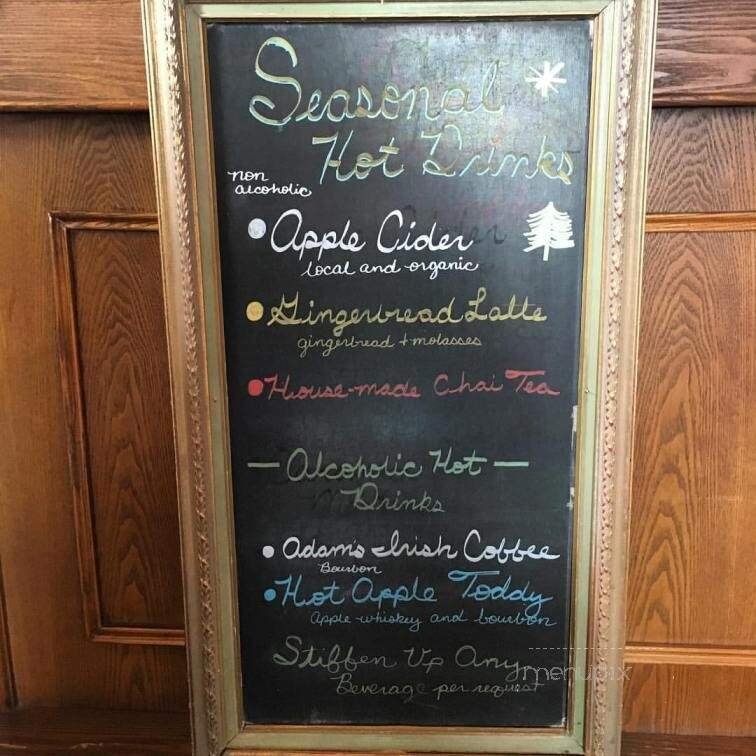 Seasonal
Hot Drinks
non
alcoholic
Apple Cider
local and organic
Gingerbread Latte
gingerbread + molasses
House-made Chai Tea
— Alcoholic Hot —
Drinks
Adam's Irish Coffee
Bourbon
Hot Apple Toddy
Apple whiskey and bourbon
Stiffen Up Any
Beverage per request
menupix